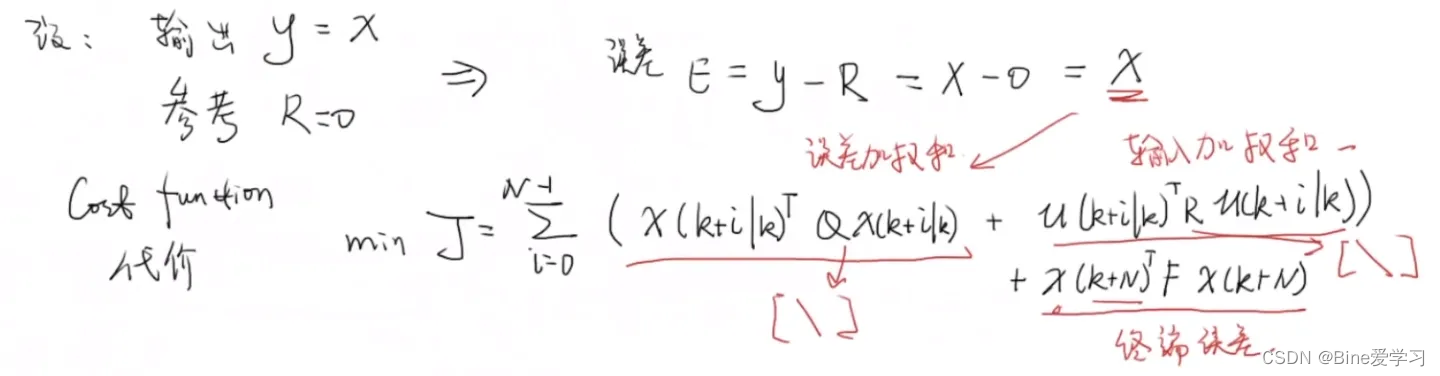 设： 输出 y = x
参考 R=0
⇒ 误差 E = y - R = x - 0 = x
误差加权和
输入加权和
Cost function
代价
min J = ∑_{i=0}^{N-1} ( x(k+i|k)^T Q x(k+i|k) + u(k+i|k)^T R u(k+i|k))
+ x(k+N)^T F x(k+N)
[\]
[\]
终端误差.
CSDN @Bine爱学习